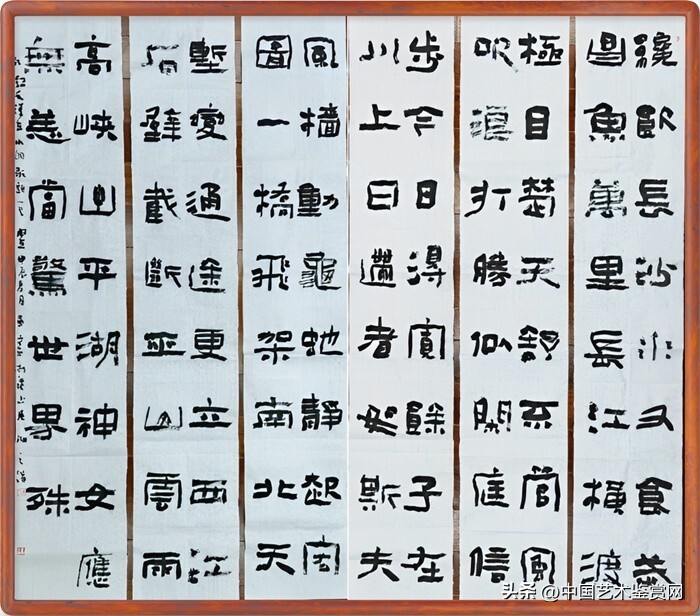 纔飲長沙水又食武
昌魚萬里長江橫渡
極目楚天舒不管風
吹浪打勝似閑庭信
步今日得寬餘子在
川上曰逝者如斯夫
風檣動龜蛇靜起宏
圖一橋飛架南北天
塹變通途更立西江
石壁截斷巫山雲雨
高峽出平湖神女應
無恙當驚世界殊
头条 @中国艺术鉴赏网